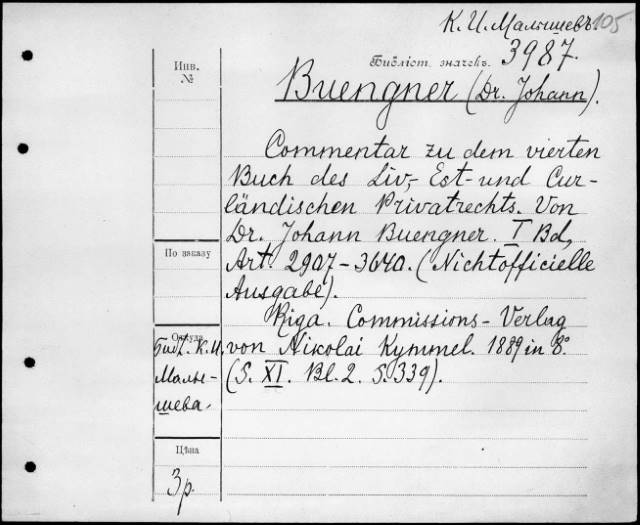 К. И. Малышевъ. 105
Библіот. значекъ. 3987.
Инв.
№
Buengner (Dr. Johann).
Commentar zu dem vierten
Buch des Liv-, Est- und Cur-
ländischen Privatrechts. Von
Dr. Johann Buengner. I Bd,
По заказу
Art. 2907-3640. (Nichtofficielle
Ausgabe).
Riga. Commissions-Verlag
Откуда
Библ. К. И. Малы-
шева.
von Nikolai Kymmel. 1889 in 8.°
(S. XI. Bl. 2. S. 339).
Цѣна
3 р.